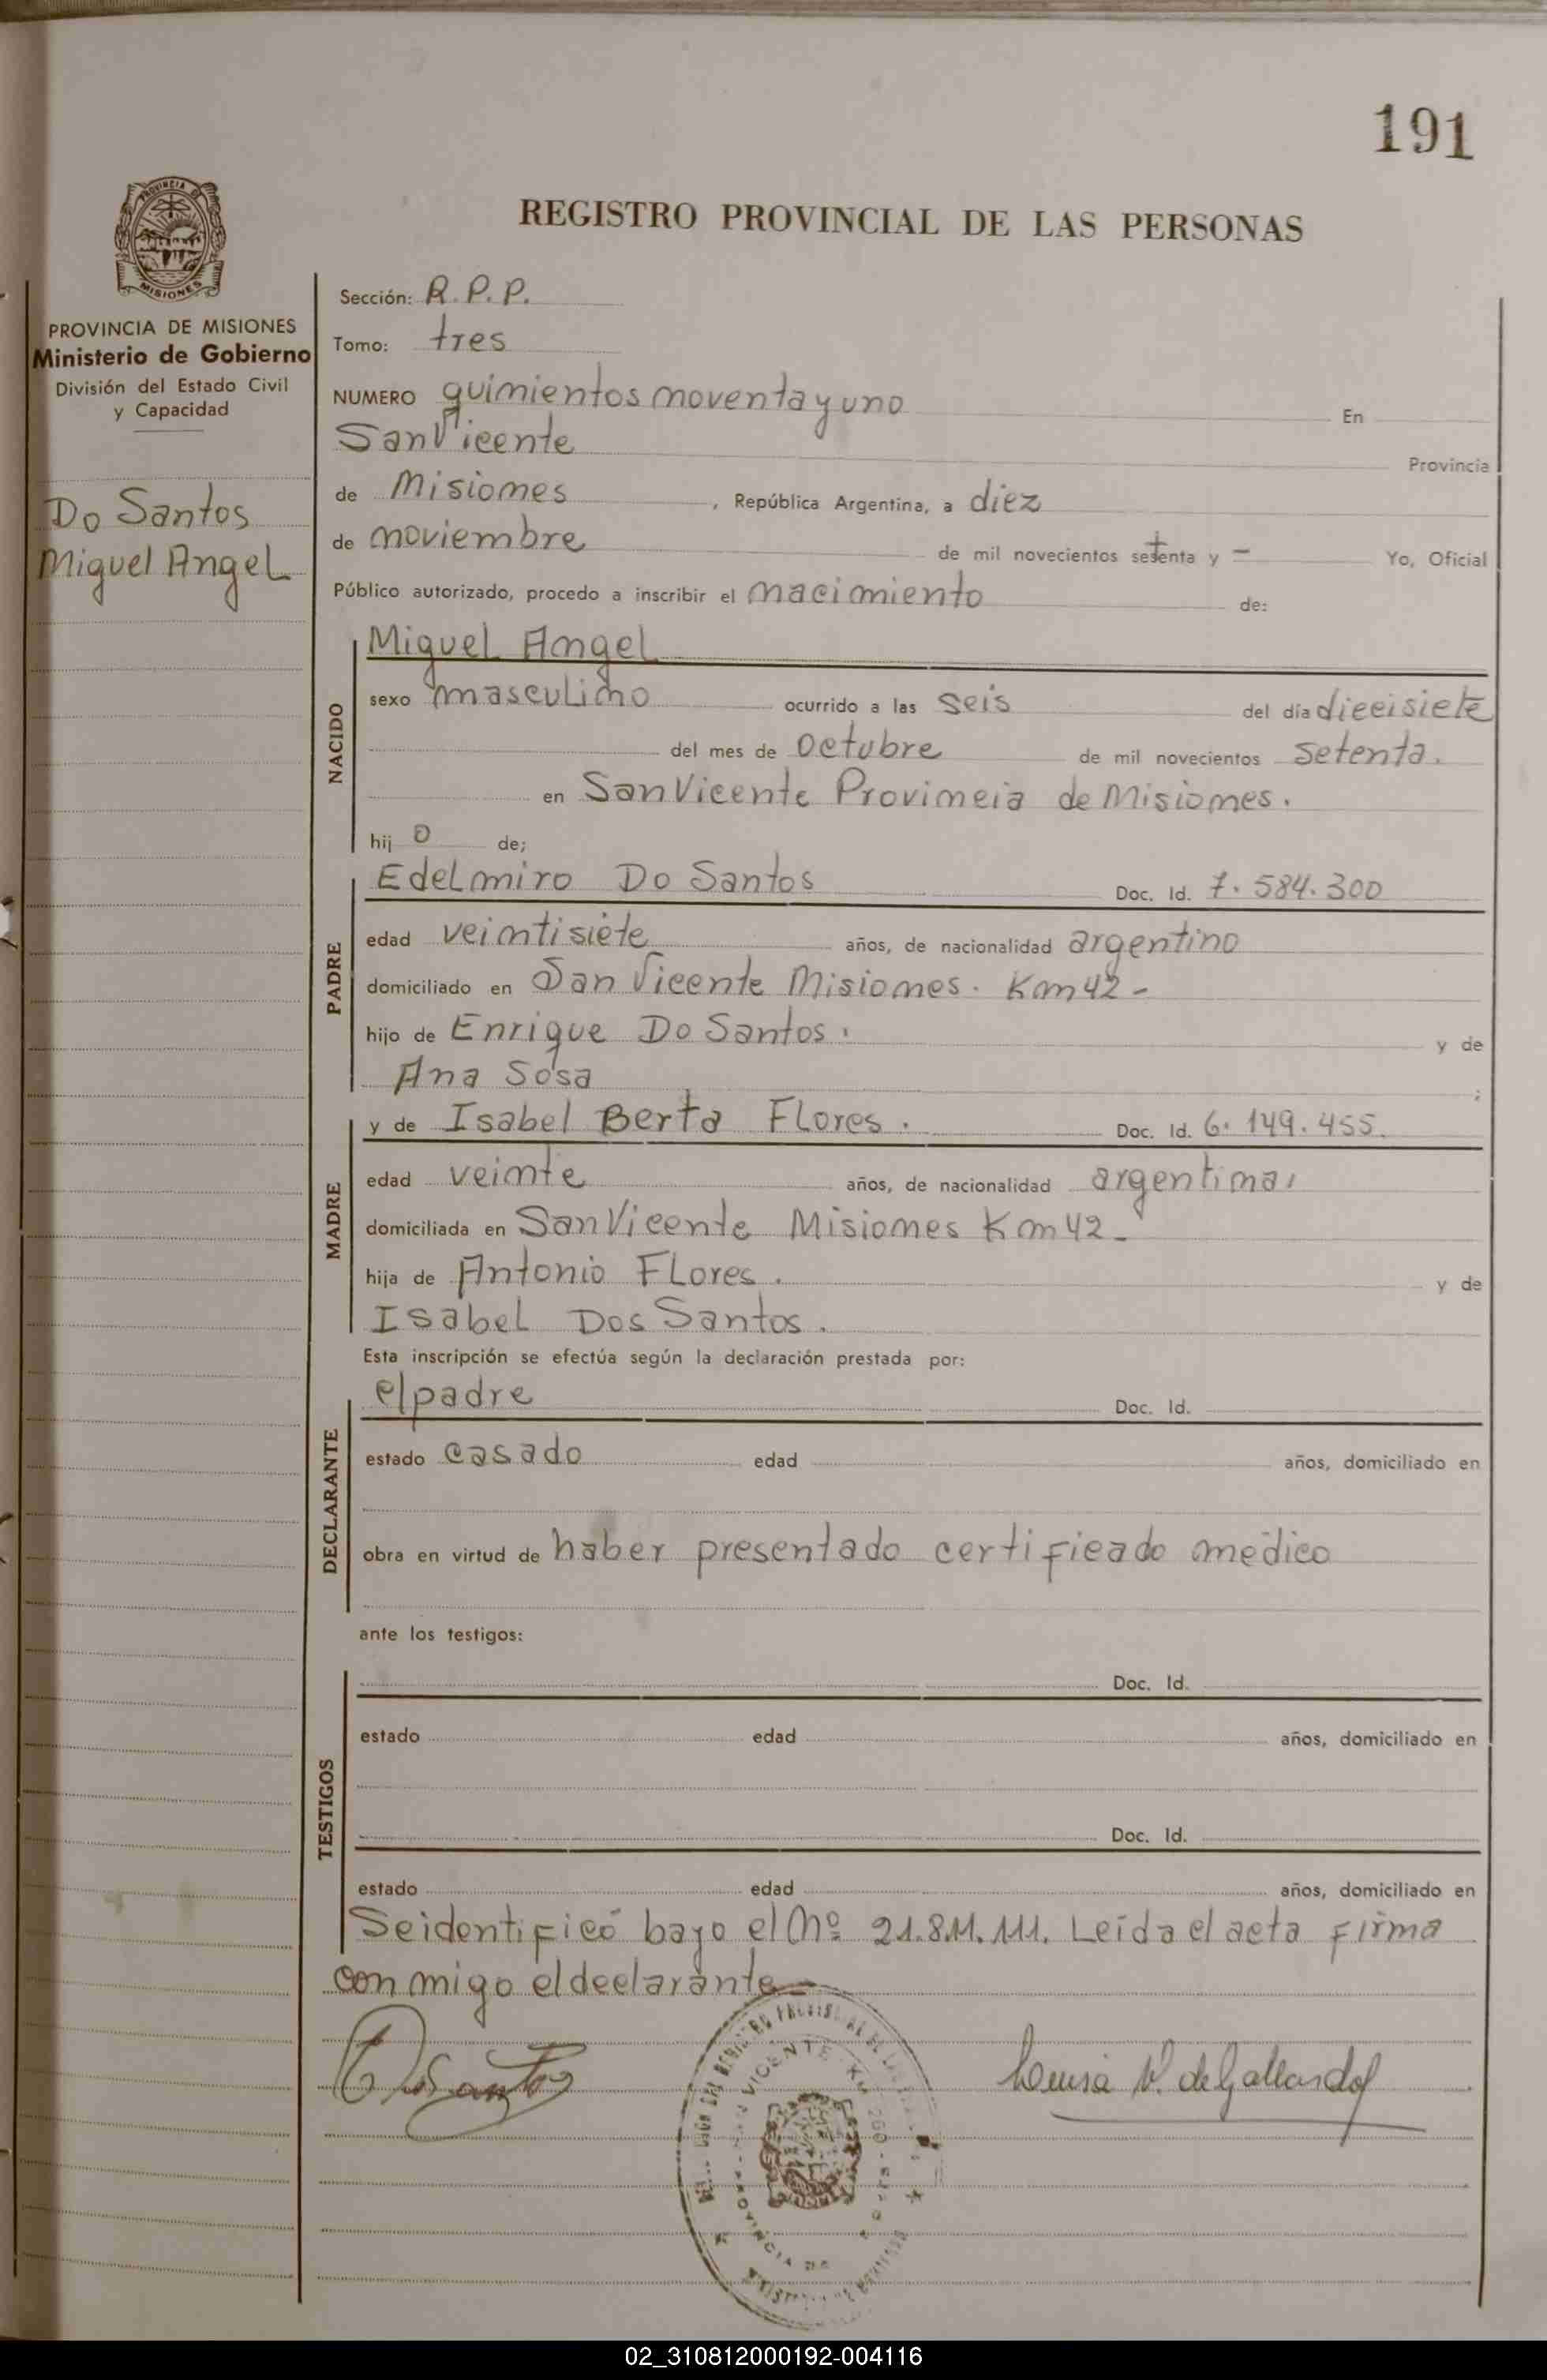 191
REGISTRO PROVINCIAL DE LAS PERSONAS
PROVINCIA DE
MISIONES
PROVINCIA DE MISIONES
Ministerio de Gobierno
División del Estado Civil
y Capacidad
Do Santos
Miguel Angel
Sección: R.P.P.
Tomo: tres
NUMERO quinientos noventa y uno En
San Vicente Provincia
de Misiones, República Argentina, a diez
de noviembre de mil novecientos setenta y - Yo, Oficial
Público autorizado, procedo a inscribir el nacimiento de:
NACIDO
Miguel Angel
sexo masculino ocurrido a las seis del día diecisiete
del mes de octubre de mil novecientos setenta.
en San Vicente Provincia de Misiones.
hij o de;
PADRE
Edelmiro Do Santos Doc. Id. 7.584.300
edad veintisiete años, de nacionalidad argentino
domiciliado en San Vicente Misiones. Km 42-
hijo de Enrique Do Santos. y de
Ana Sosa ;
MADRE
y de Isabel Berta Flores. Doc. Id. 6.149.455.
edad veinte años, de nacionalidad argentina,
domiciliada en San Vicente Misiones Km 42-
hija de Antonio Flores. y de
Isabel Dos Santos.
Esta inscripción se efectúa según la declaración prestada por:
DECLARANTE
el padre Doc. Id.
estado casado edad años, domiciliado en
obra en virtud de haber presentado certificado médico
ante los testigos:
TESTIGOS
Doc. Id.
estado edad años, domiciliado en
Doc. Id.
estado edad años, domiciliado en
Se identificó bajo el Nº 21.811.111. Leída el acta firma
con migo el declarante-
Do Santos
Luisa V. de Gallardo
SAN VICENTE
PROVINCIA DE
02_310812000192-004116